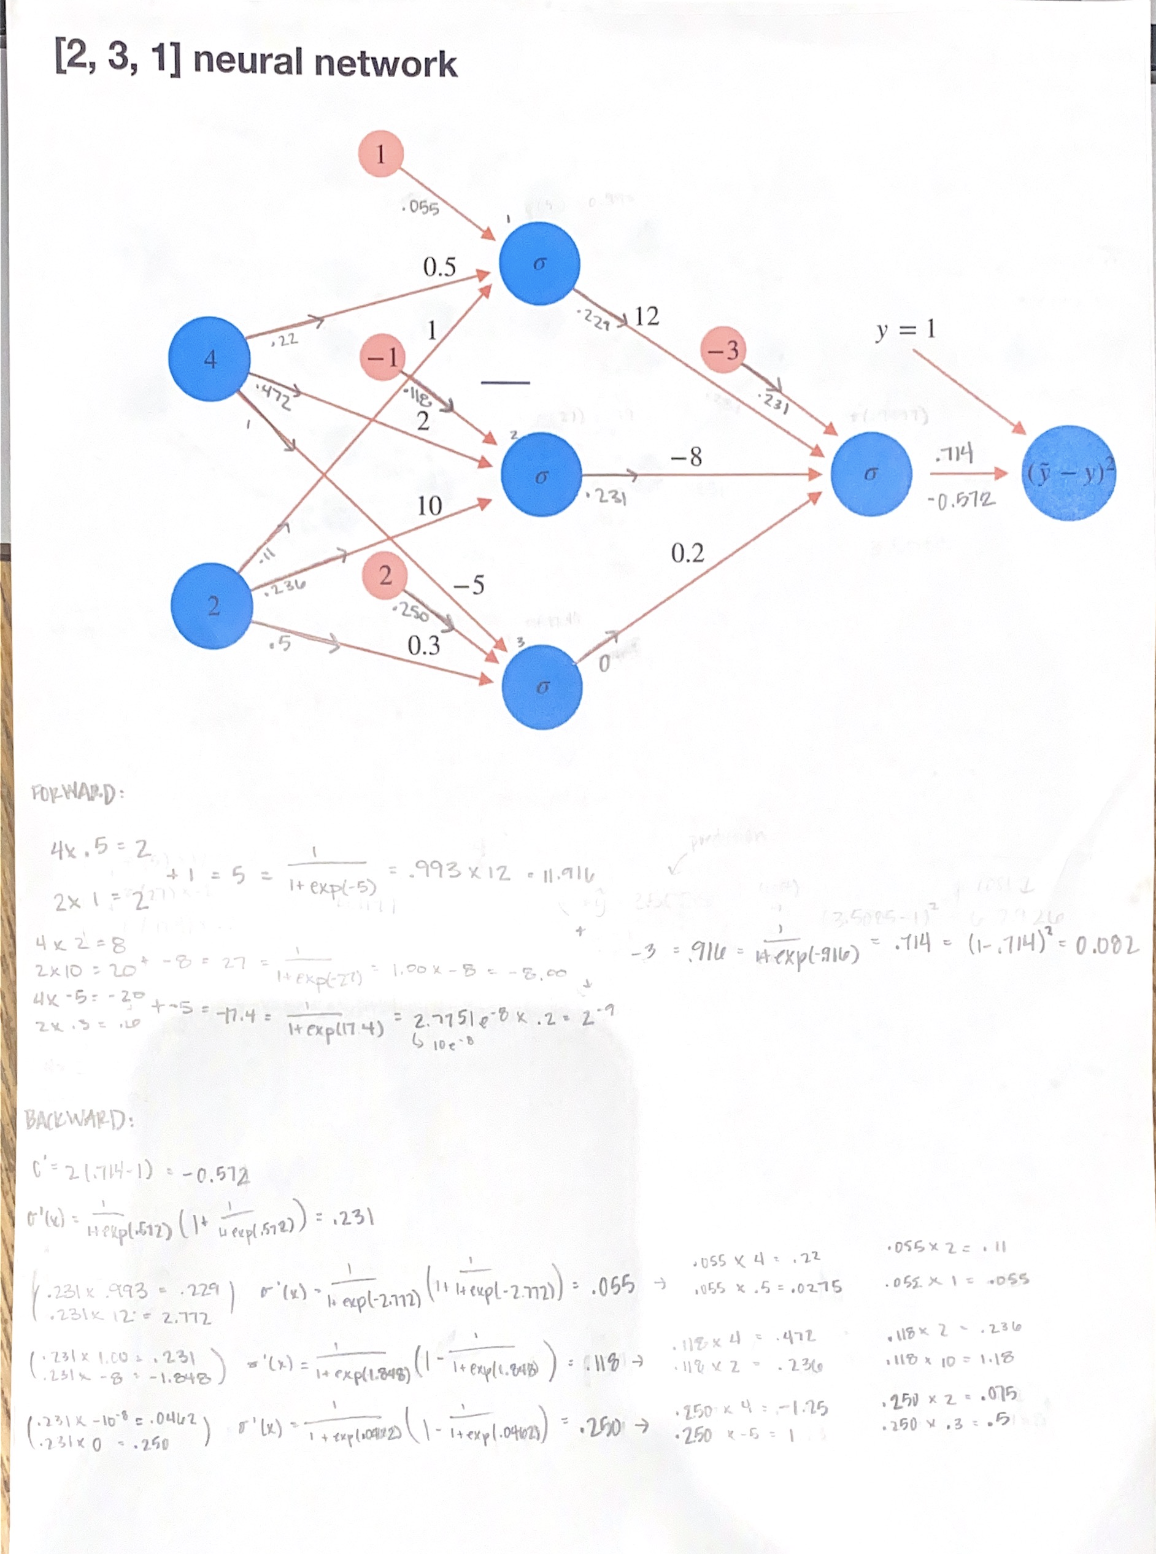 [2, 3, 1] neural network
1
.055
1
σ
0.5
.22
12
.229
4
-1
1
-3
y = 1
.472
.118
.231
1
2
2
σ
-8
.231
σ
.714
-0.572
(ỹ - y)²
10
.11
.236
2
2
.250
-5
0.2
.5
0.3
3
σ
0
FORWARD:
4x.5=2
2x1=2
+1 = 5 = 1/(1+exp(-5)) = .993 x 12 = 11.916
+
4x2=8
2x10=20
+ -8 = 27 = 1/(1+exp(-27)) = 1.00 x -8 = -8.00
-3 = .916 = 1/(1+exp(-.916)) = .714 = (1-.714)² = 0.082
4x-5=-20
+-5 = -17.4 = 1/(1+exp(17.4)) = 2.7751e⁻⁸ x .2 = 2⁻⁹
↳ 10e⁻⁸
BACKWARD:
C' = 2(.714-1) = -0.572
σ'(x) = 1/(1+exp(.572)) (1+ 1/(1+exp(.572))) = .231
(.231x.993 = .229
.231x12 = 2.772)
σ'(x) = 1/(1+exp(-2.772)) (1+ 1/(1+exp(-2.772))) = .055 →
.055 x 4 = .22
.055 x .5 = .0275
.055 x 2 = .11
.055 x 1 = .055
(.231x1.00 = .231
.231x-8 = -1.848)
σ'(x) = 1/(1+exp(1.848)) (1- 1/(1+exp(1.848))) = .118 →
.118 x 4 = .472
.118 x 2 = .236
.118 x 2 = .236
.118 x 10 = 1.18
(.231x-10⁻⁸ = .0462
.231x0 = .250)
σ'(x) = 1/(1+exp(.0462)) (1- 1/(1+exp(.0462))) = .250 →
.250 x 4 = -1.25
.250 x -5 = 1
.250 x 2 = .075
.250 x .3 = .5